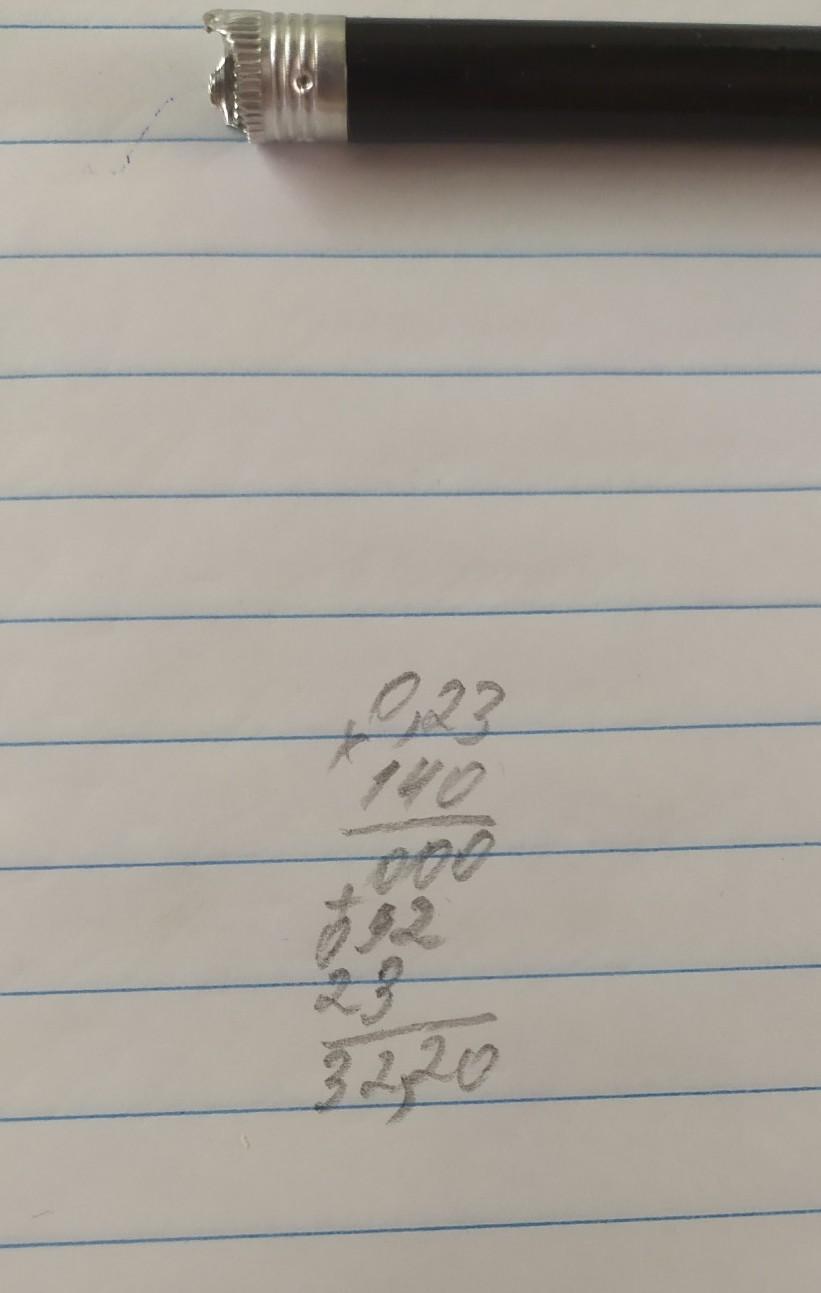 0,23
x
140
000
+
092
23
32,20